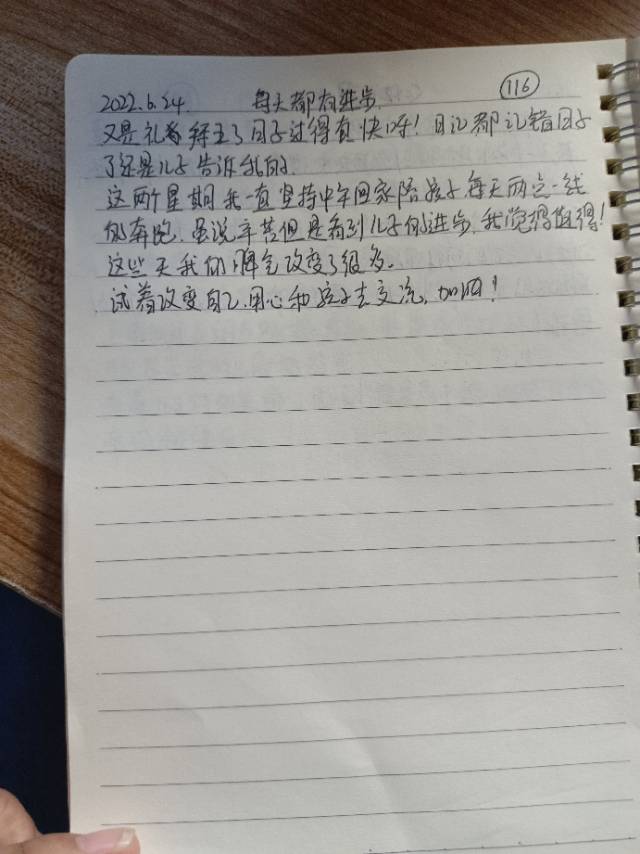 2022.6.24. 每天都有进步 116
又是礼拜五了日子过得真快呀！日记都记错日子
了还是儿子告诉我的.
这两个星期我一直坚持中午回家陪孩子.每天两点一线
的奔跑.虽说辛苦但是看到儿子的进步.我觉得值得!
这些天我的脾气改变了很多.
试着改变自己.用心和孩子去交流.加油!